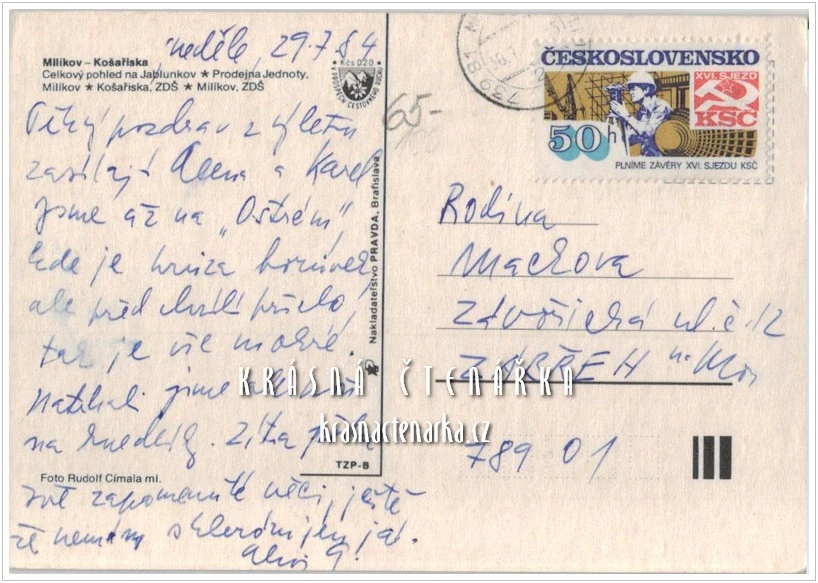 neděle, 29.7.84
Milíkov – Košařiska
Celkový pohled na Jablunkov ★ Prodejna Jednoty,
Milíkov ★ Košařiska, ZDŠ ★ Milíkov, ZDŠ
Kčs 0,20
65-
739 81
ČESKOSLOVENSKO
XVI. SJEZD
KSČ
50 h
PLNÍME ZÁVĚRY XVI. SJEZDU KSČ
Pěkný pozdrav z výletu
zasílají Alena a Karel
Jsme až na „Ostrém",
kde je hrůza borůvek
ale před chvílí pršelo,
tak je vše mokré.
Natrhali jsme
na knedlíky. Zítra
zapomenuté věci, ještě
že nemám sklerózu jen já.
Nakladatelství PRAVDA, Bratislava
TZP-B
Foto Rudolf Címala ml.
Rodina
Mackova
Závořická ul. č. 12
ZÁBŘEH na Mor
789 01
KRÁSNÁ ČTENÁŘKA
krasnactenarka.cz